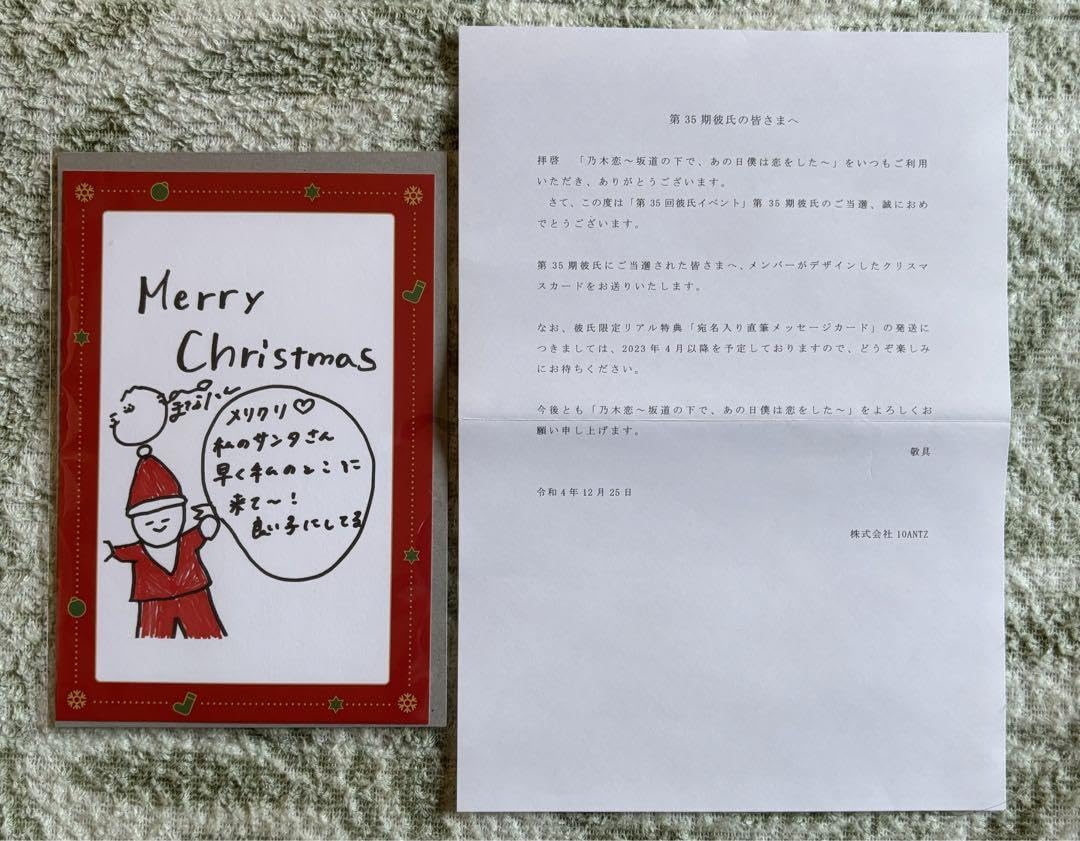 Merry
Christmas
メリクリ♡
私のサンタさん
早く私のとこに
来て〜!
良い子にしてる
第35期彼氏の皆さまへ
拝啓 「乃木恋〜坂道の下で、あの日僕は恋をした〜」をいつもご利用
いただき、ありがとうございます。
さて、この度は「第35回彼氏イベント」第35期彼氏のご当選、誠におめ
でとうございます。
第35期彼氏にご当選された皆さまへ、メンバーがデザインしたクリスマ
スカードをお送りいたします。
なお、彼氏限定リアル特典「宛名入り直筆メッセージカード」の発送に
つきましては、2023年4月以降を予定しておりますので、どうぞ楽しみ
にお待ちください。
今後とも「乃木恋〜坂道の下で、あの日僕は恋をした〜」をよろしくお
願い申し上げます。
敬具
令和4年12月25日
株式会社10ANTZ